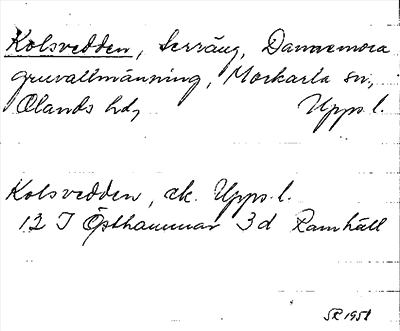 Kolsvedden, terräng, Dannemora
gruvallmänning, Morkarla sn,
Olands hd, Upps. l.
Kolsvedden, ek. Upps. l.
12 I Östhammar 3d Ramhäll
SR 1951